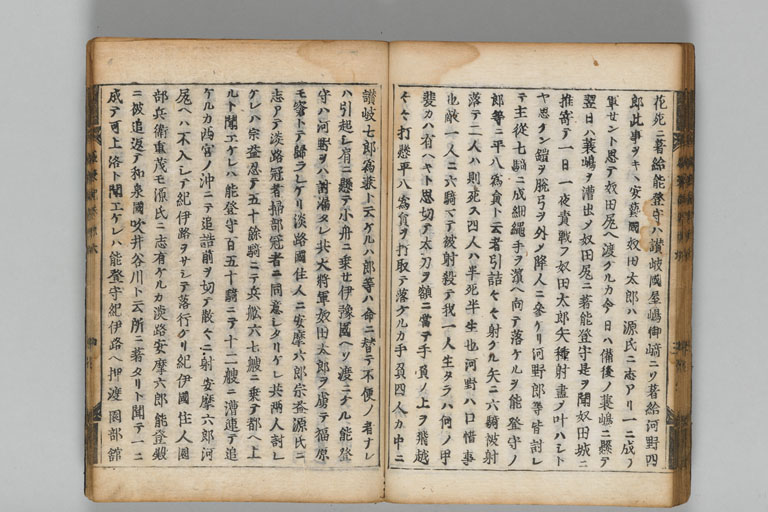 花死ニ著給能登守ハ讃岐國屋嶋御﨑ニソ著給河野四
郎此事ヲキヽ安藝國奴田太郎ハ源氏ニ志アリ一ニ成ラ
軍セント思テ奴田尻ヘ渡クルカ今日ハ備後ノ蓑嶋ニ懸テ
翌日ハ蓑嶋ヲ漕出メ奴田尻ニ著能登守是ヲ聞奴田城ニ
推寄テ一日一夜責戰フ奴田太郎矢種射盡メ叶ハシト
ヤ思ケン鎧ヲ脱弓ヲ外メ降人ニ參ケリ河野郎等皆討レ
テ主從七騎ニ成細繩手ヲ濱ヘ向テ落ケルヲ能登守ノ
郎等ニ平八爲員ト云者引詰々々射クル矢ニ六騎被射
落テ二人ハ則死ス四人ハ半死半生也河野ハ口惜事
也敵一人ニ六騎マテ被射殺テ我一人生タラハ何ノ甲
斐カハ有ヘキト思切テ太刀ヲ額ニ當テ手負ノ上ヲ飛越
々々打懸平八爲員ヲ打取テ落ケルカ手負四人カ中ニ
讃岐七郎爲兼ト云ケルハ郎等ハ命ニ替テ不便ノ者ナレ
ハ引起シ肩ニ懸テ小舟ニ乗セ伊豫國ヘソ渡ニケル能登
守ハ河野ヲハ討漏タレ共大將軍奴田太郎ヲ虜テ福原
モ窄トテ歸ラレケリ淡路國住人ニ安摩六郎宗益源氏ニ
志アテ淡路冠者掃部冠者ニ同意シタリケレ共兩人討レ
ケレハ宗益忍テ五十餘騎ニテ兵舩六七艘ニ乗テ都ヘ上
ルト聞エケレハ能登守百五十騎ニテ十二艘ニ漕連テ追
ケルカ西宮ノ沖ニテ追詰前ヲ切テ散々ニ射安摩六郎河
尻ヘハ不入シテ紀伊路ヲサシテ落行クリ紀伊國住人園
部兵衛重茂モ源氏ニ志有ケルカ淡路安摩六郎能登殿
ニ被追返テ和泉國吹井谷川ト云所ニ著タリト聞テ一ニ
成テ可上洛ト聞エケレハ能登守紀伊路ヘ押渡園部舘